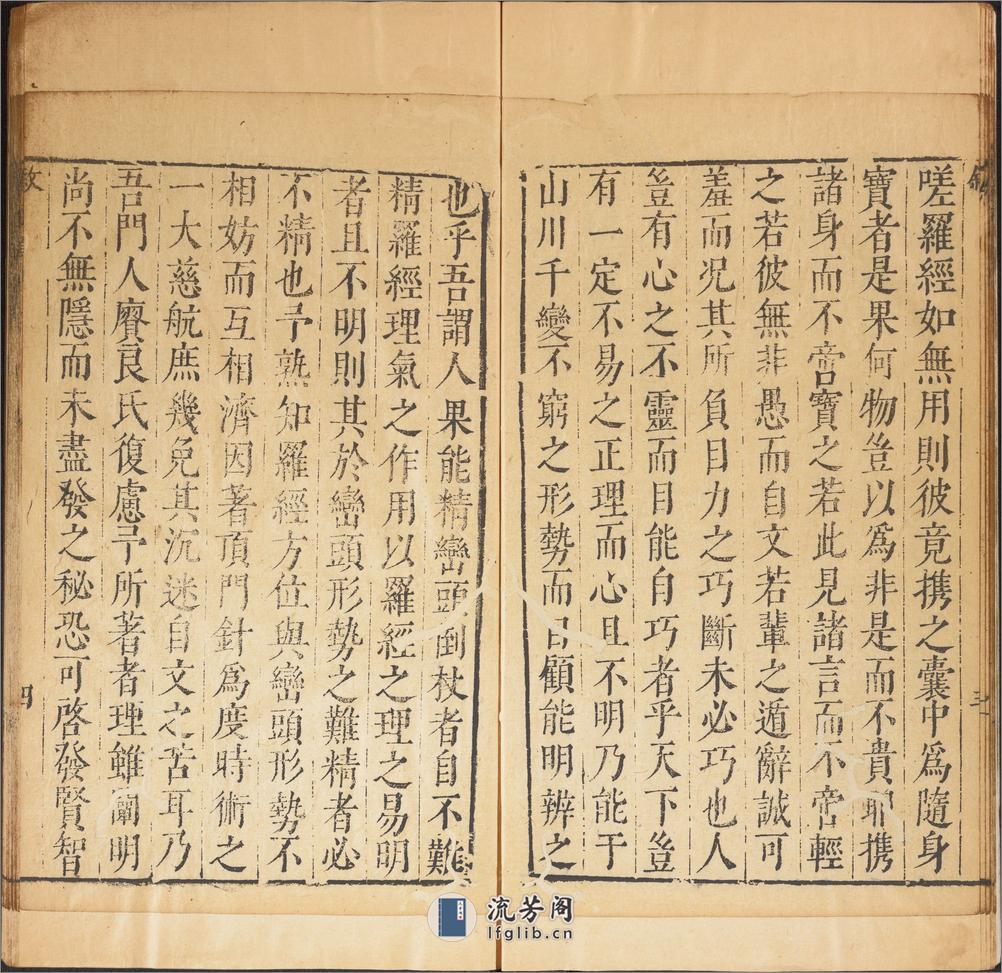 嗟羅經如無用則彼竟携之囊中為隨身
寶者是果何物豈以為非是而不貴耶携
諸身而不啻寶之若此見諸言而不啻輕
之若彼無非愚而自文若輩之遁辭誠可
羞而况其所負目力之巧斷未必巧也人
豈有心之不靈而目能自巧者乎天下豈
有一定不易之正理而心且不明乃能于
山川千變不窮之形勢而目顧能明辨之
三
也乎吾謂人果能精巒頭倒杖者自不難
精羅經理氣之作用以羅經之理之易明
者且不明則其於巒頭形勢之難精者必
不精也予熟知羅經方位與巒頭形勢不
相妨而互相濟因著頂門針為度時術之
一大慈航庶幾免其沉迷自文之苦耳乃
吾門人賡良氏復慮予所著者理雖闡明
尚不無隱而未盡發之秘恐可啓發賢智
四
流芳阁
lfglib.cn